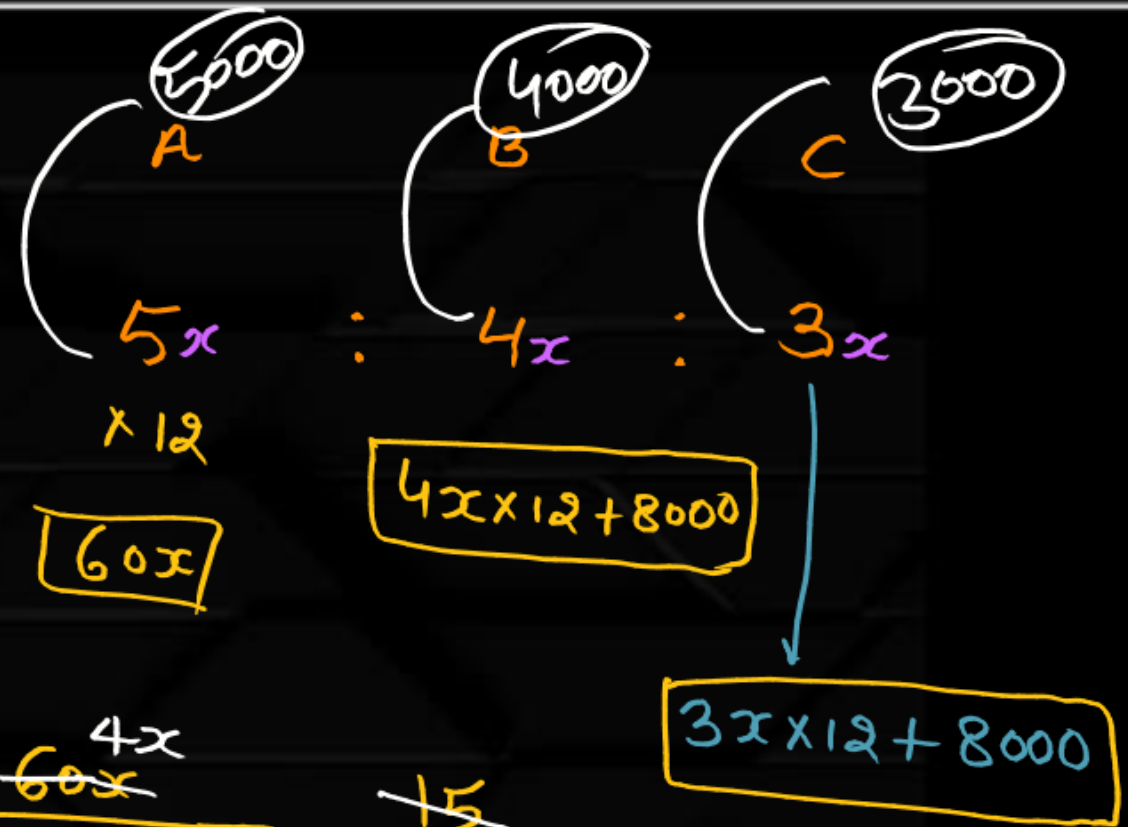 5000 4000 3000
A B C
5x : 4x : 3x
× 12
4x×12+8000
60x
3x×12+8000
4x
60x 15